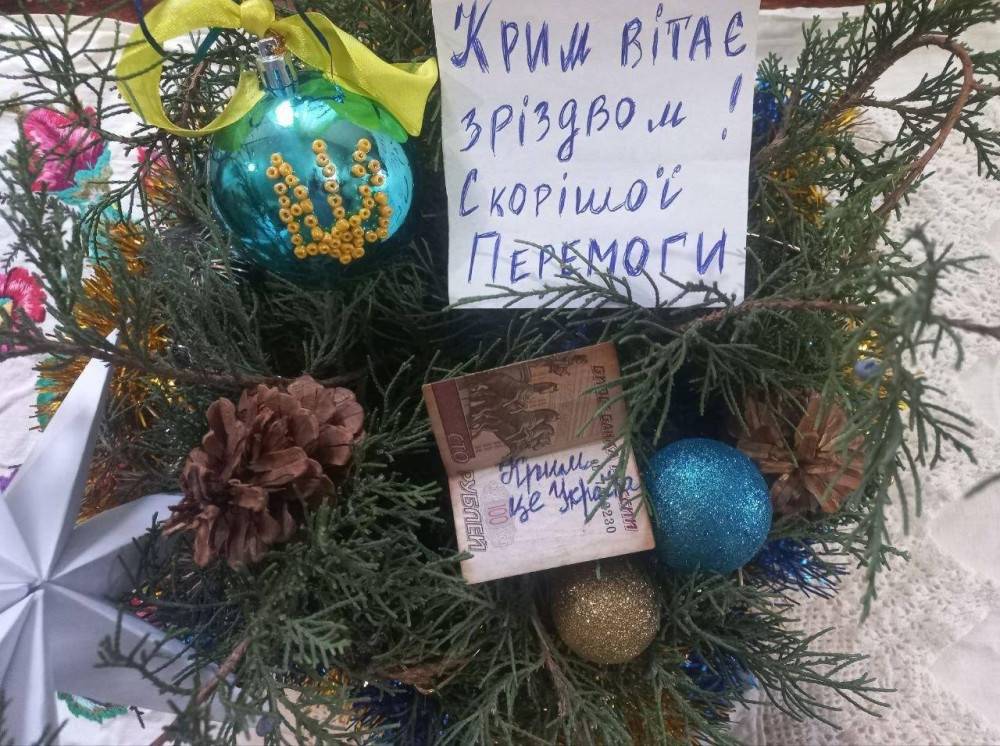 Крим вітає
зріздвом !
Скорішої
Перемоги
СТО РУБЛЕЙ
Крим
це Україна
100